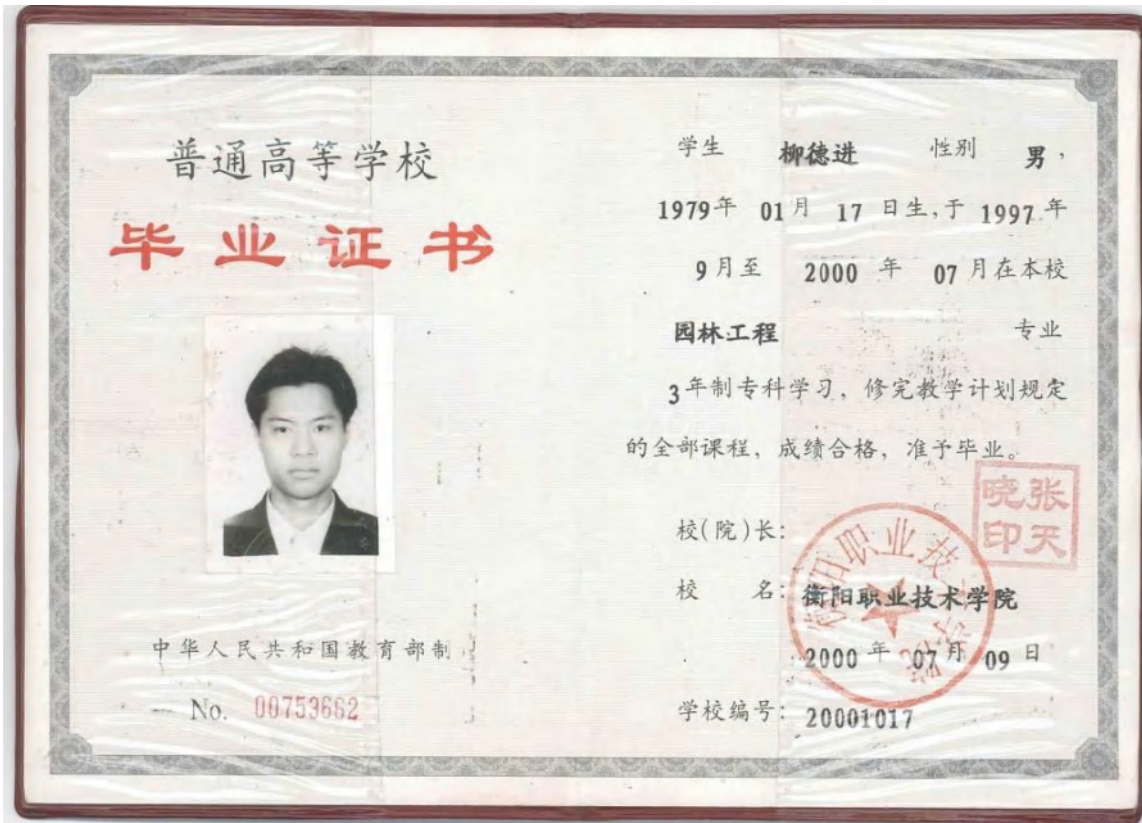 普通高等学校
毕业证书
中华人民共和国教育部制
No. 00753662
学生 柳德进 性别 男，
1979年 01月 17 日生,于 1997 年
9月至 2000 年 07月在本校
园林工程 专业
3年制专科学习，修完教学计划规定
的全部课程，成绩合格，准予毕业。
校(院)长:
张天晓印
校 名: 衡阳职业技术学院
衡阳职业技术学院
2000 年 07 月 09 日
学校编号: 20001017